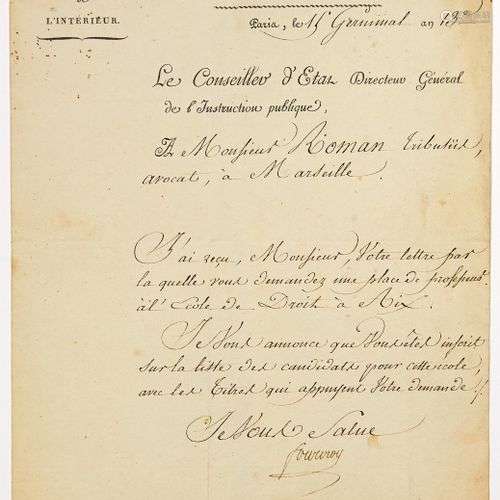 DE
L'INTÉRIEUR.
Paris, le 15 Germinal an 13
Le Conseiller d'Etat Directeur Général
de l'Instruction publique,
A Monsieur Roman Tributiis,
avocat, à Marseille.
J'ai reçu, Monsieur, Votre lettre par
la quelle vous demandez une place de professeur
à l'Ecole de Droit à Aix.
Je Vous annonce que Vous êtes inscrit
sur la liste des candidats pour cette école,
avec les titres qui appuyent Votre demande.
Je Vous Salue
Fourcroy